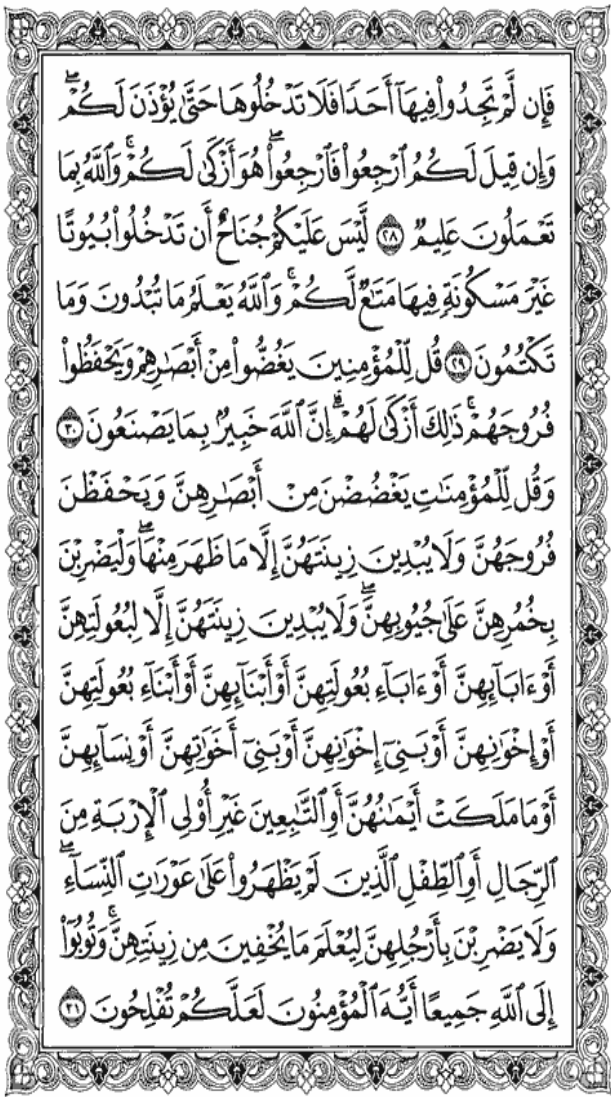 فَإِن لَّمْ تَجِدُوا۟ فِيهَآ أَحَدًا فَلَا تَدْخُلُوهَا حَتَّىٰ يُؤْذَنَ لَكُمْ ۖ
وَإِن قِيلَ لَكُمُ ٱرْجِعُوا۟ فَٱرْجِعُوا۟ ۖ هُوَ أَزْكَىٰ لَكُمْ ۚ وَٱللَّهُ بِمَا
تَعْمَلُونَ عَلِيمٌ ٢٨ لَّيْسَ عَلَيْكُمْ جُنَاحٌ أَن تَدْخُلُوا۟ بُيُوتًا
غَيْرَ مَسْكُونَةٍ فِيهَا مَتَـٰعٌ لَّكُمْ ۚ وَٱللَّهُ يَعْلَمُ مَا تُبْدُونَ وَمَا
تَكْتُمُونَ ٢٩ قُل لِّلْمُؤْمِنِينَ يَغُضُّوا۟ مِنْ أَبْصَـٰرِهِمْ وَيَحْفَظُوا۟
فُرُوجَهُمْ ۚ ذَٰلِكَ أَزْكَىٰ لَهُمْ ۗ إِنَّ ٱللَّهَ خَبِيرٌۢ بِمَا يَصْنَعُونَ ٣٠
وَقُل لِّلْمُؤْمِنَـٰتِ يَغْضُضْنَ مِنْ أَبْصَـٰرِهِنَّ وَيَحْفَظْنَ
فُرُوجَهُنَّ وَلَا يُبْدِينَ زِينَتَهُنَّ إِلَّا مَا ظَهَرَ مِنْهَا ۖ وَلْيَضْرِبْنَ
بِخُمُرِهِنَّ عَلَىٰ جُيُوبِهِنَّ ۖ وَلَا يُبْدِينَ زِينَتَهُنَّ إِلَّا لِبُعُولَتِهِنَّ
أَوْ ءَابَآئِهِنَّ أَوْ ءَابَآءِ بُعُولَتِهِنَّ أَوْ أَبْنَآئِهِنَّ أَوْ أَبْنَآءِ بُعُولَتِهِنَّ
أَوْ إِخْوَٰنِهِنَّ أَوْ بَنِىٓ إِخْوَٰنِهِنَّ أَوْ بَنِىٓ أَخَوَٰتِهِنَّ أَوْ نِسَآئِهِنَّ
أَوْ مَا مَلَكَتْ أَيْمَـٰنُهُنَّ أَوِ ٱلتَّـٰبِعِينَ غَيْرِ أُو۟لِى ٱلْإِرْبَةِ مِنَ
ٱلرِّجَالِ أَوِ ٱلطِّفْلِ ٱلَّذِينَ لَمْ يَظْهَرُوا۟ عَلَىٰ عَوْرَٰتِ ٱلنِّسَآءِ ۖ
وَلَا يَضْرِبْنَ بِأَرْجُلِهِنَّ لِيُعْلَمَ مَا يُخْفِينَ مِن زِينَتِهِنَّ ۚ وَتُوبُوٓا۟
إِلَى ٱللَّهِ جَمِيعًا أَيُّهَ ٱلْمُؤْمِنُونَ لَعَلَّكُمْ تُفْلِحُونَ ٣١